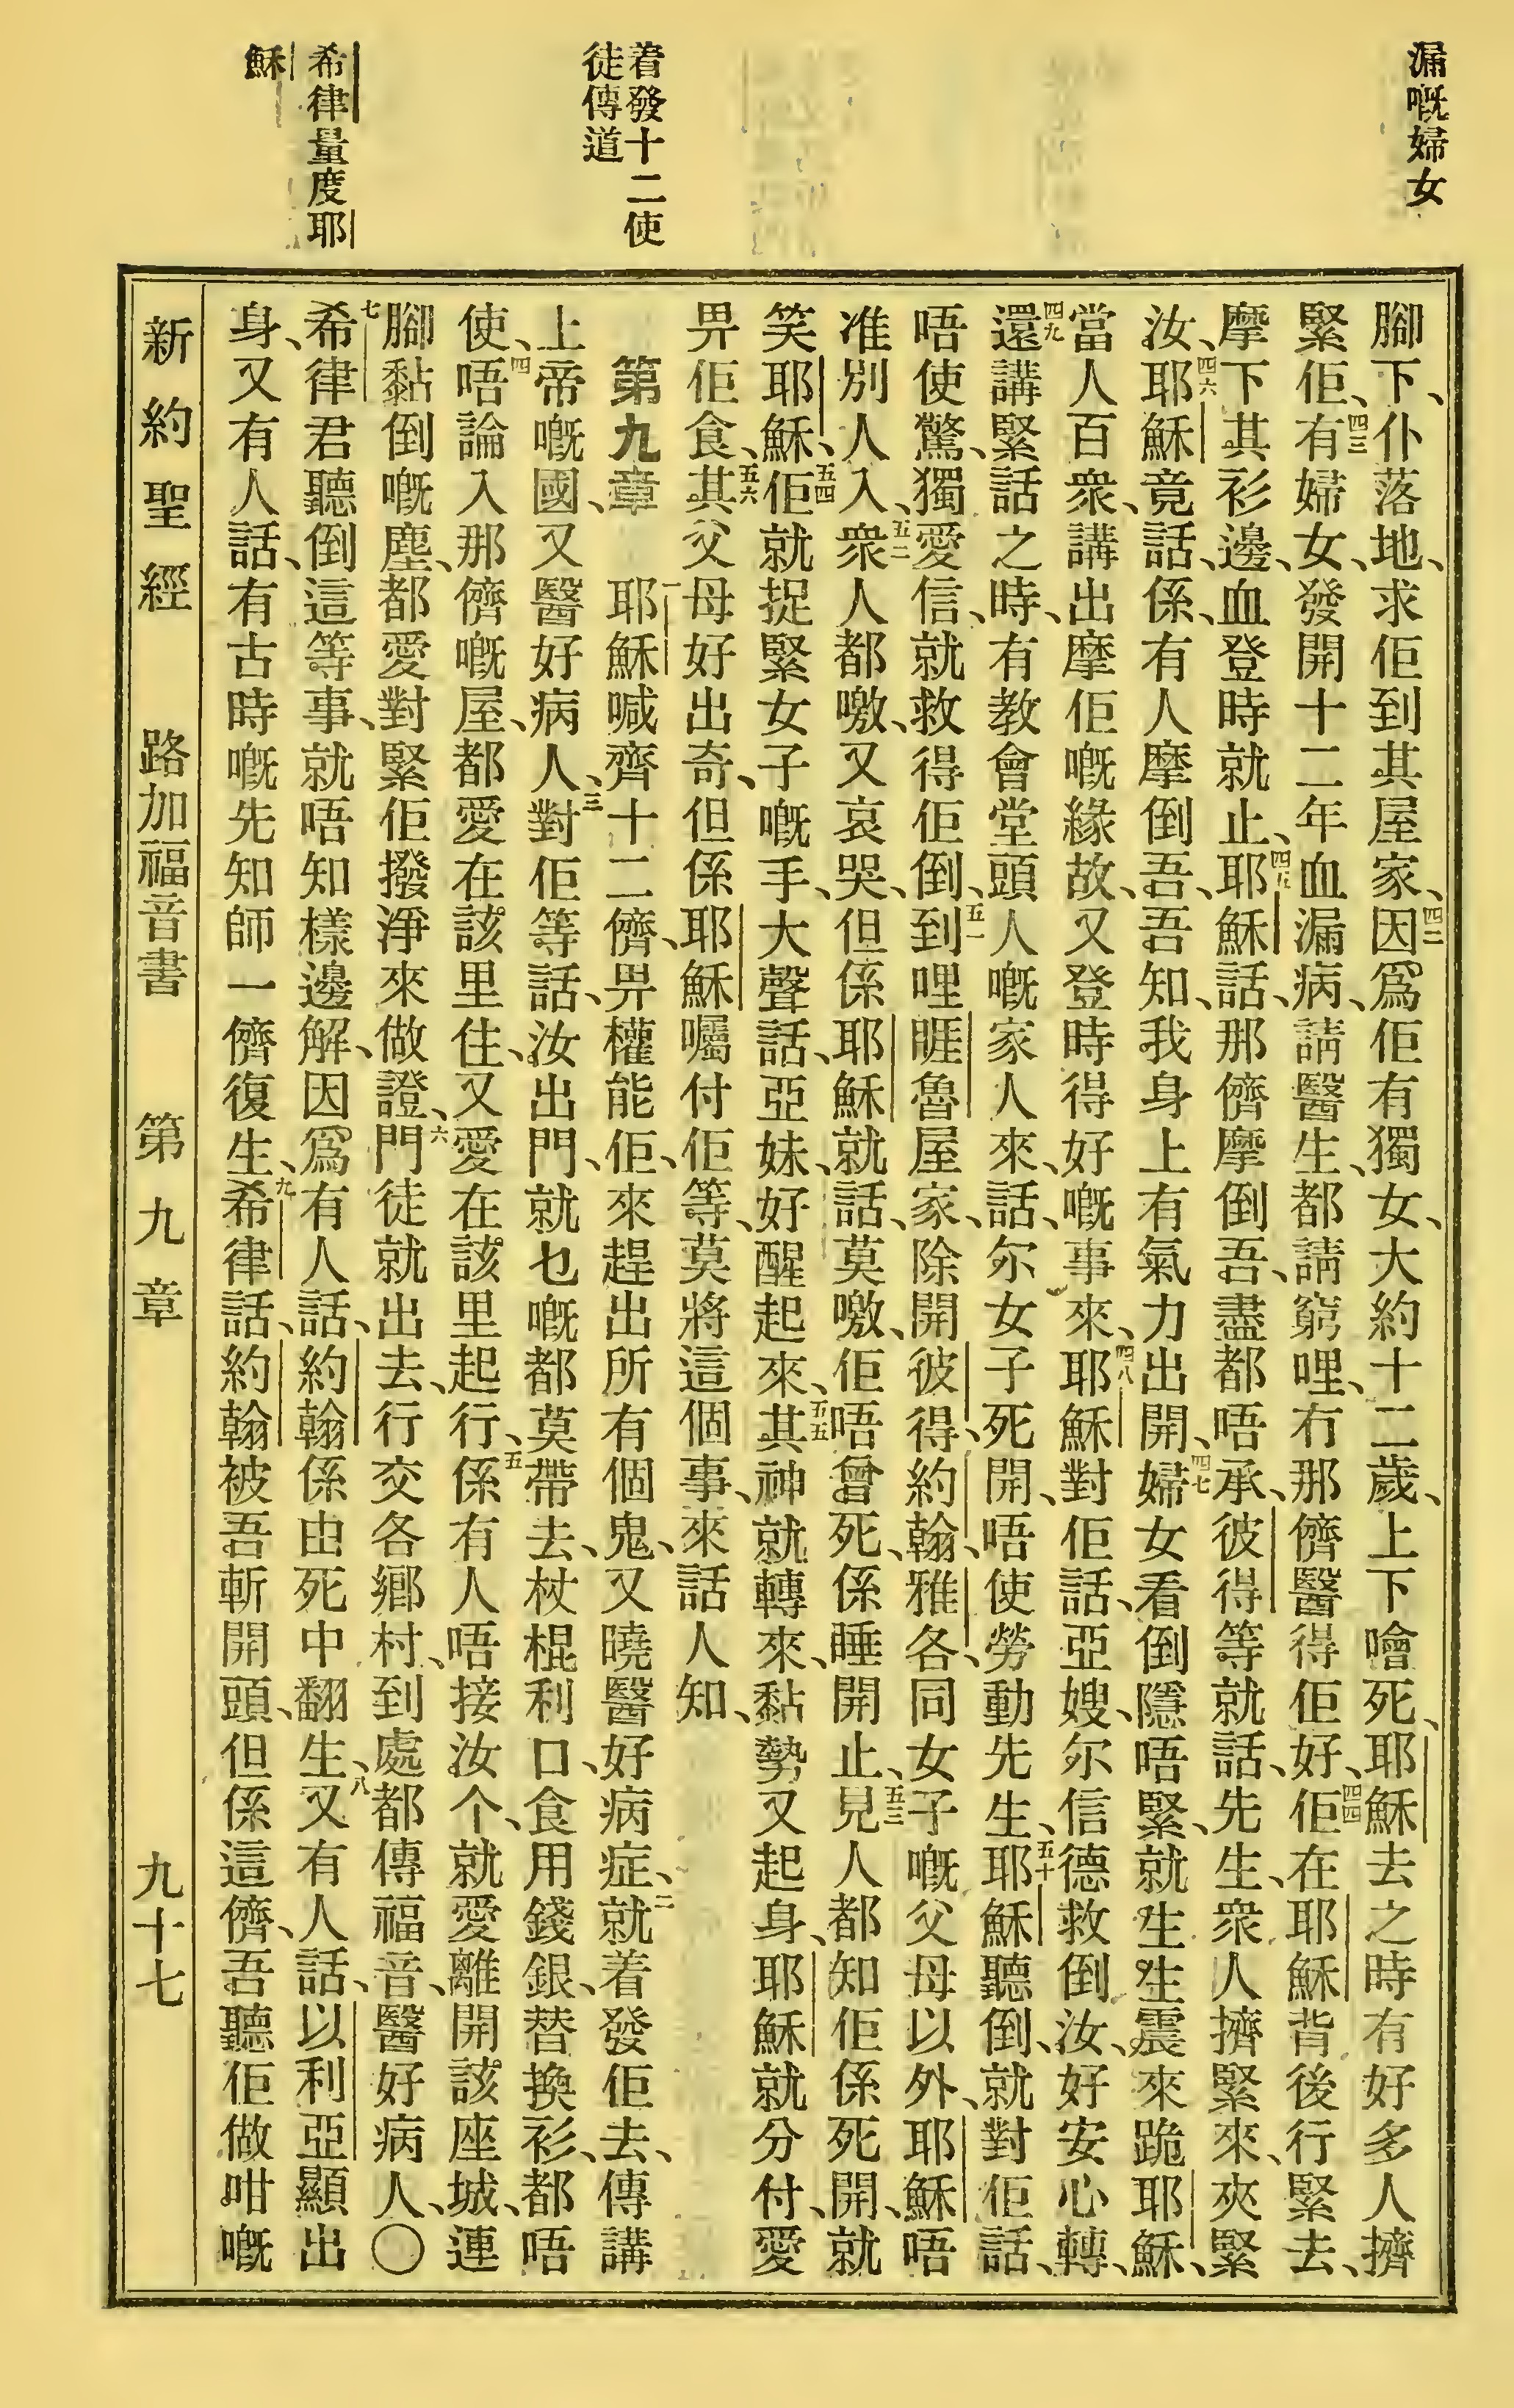 漏嘅婦女
着發十二使
徒傳道
希律量度耶
穌
腳下、仆落地、求佢到其屋家、四二因爲佢有獨女、大約十二歲、上下噲死、耶穌去之時有好多人擠
緊佢、四三有婦女、發開十二年血漏病、請醫生、都請窮哩、冇那儕醫得佢好、四四佢在耶穌背後行緊去、
摩下其衫邊、血登時就止、四五耶穌話、那儕摩倒吾、盡都唔承、彼得等就話、先生、衆人擠緊來、夾緊
汝、四六耶穌竟話、係、有人摩倒吾、吾知、我身上有氣力出開、四七婦女看倒隱唔緊、就生生震來跪耶穌、
當人百衆、講出摩佢嘅緣故、又登時得好嘅事來、四八耶穌對佢話、亞嫂、尔信德救倒汝、好安心轉、
四九還講緊話之時、有教會堂頭人嘅家人來、話、尔女子死開、唔使勞動先生、五十耶穌聽倒、就對佢話、
唔使驚、獨愛信、就救得佢倒、五一到哩睚魯屋家、除開彼得、約翰、雅各、同女子嘅父母以外、耶穌唔
准別人入、五二衆人都噭、又哀哭、但係耶穌就話、莫噭、佢唔曾死、係睡開止、五三見人都知佢係死開、就
笑耶穌、五四佢就捉緊女子嘅手、大聲話、亞妹、好醒起來、五五其神就轉來、黏勢又起身、耶穌就分付、愛
畀佢食、五六其父母好出奇、但係耶穌囑付佢等、莫將這個事、來話人知、
第九章 一耶穌喊齊十二儕、畀權能佢、來趕出所有個鬼、又曉醫好病症、二就着發佢去、傳講
上帝嘅國、又醫好病人、三對佢等話、汝出門、就乜嘅都莫帶去、杖棍利口、食用錢銀、替換衫、都唔
使、四唔論入那儕嘅屋、都愛在該里住、又愛在該里起行、五係有人唔接汝个、就愛離開該座城、連
腳黏倒嘅塵、都愛對緊佢撥淨來做證、六門徒就出去、行交各鄉村、到處都傳福音、醫好病人、〇
七希律君聽倒這等事、就唔知樣邊解、因爲有人話、約翰係由死中翻生、八又有人話、以利亞顯出
身、又有人話、有古時嘅先知師一儕復生、九希律話、約翰被吾斬開頭、但係這儕、吾聽佢做咁嘅
新約聖經 路加福音書 第九章 九十七